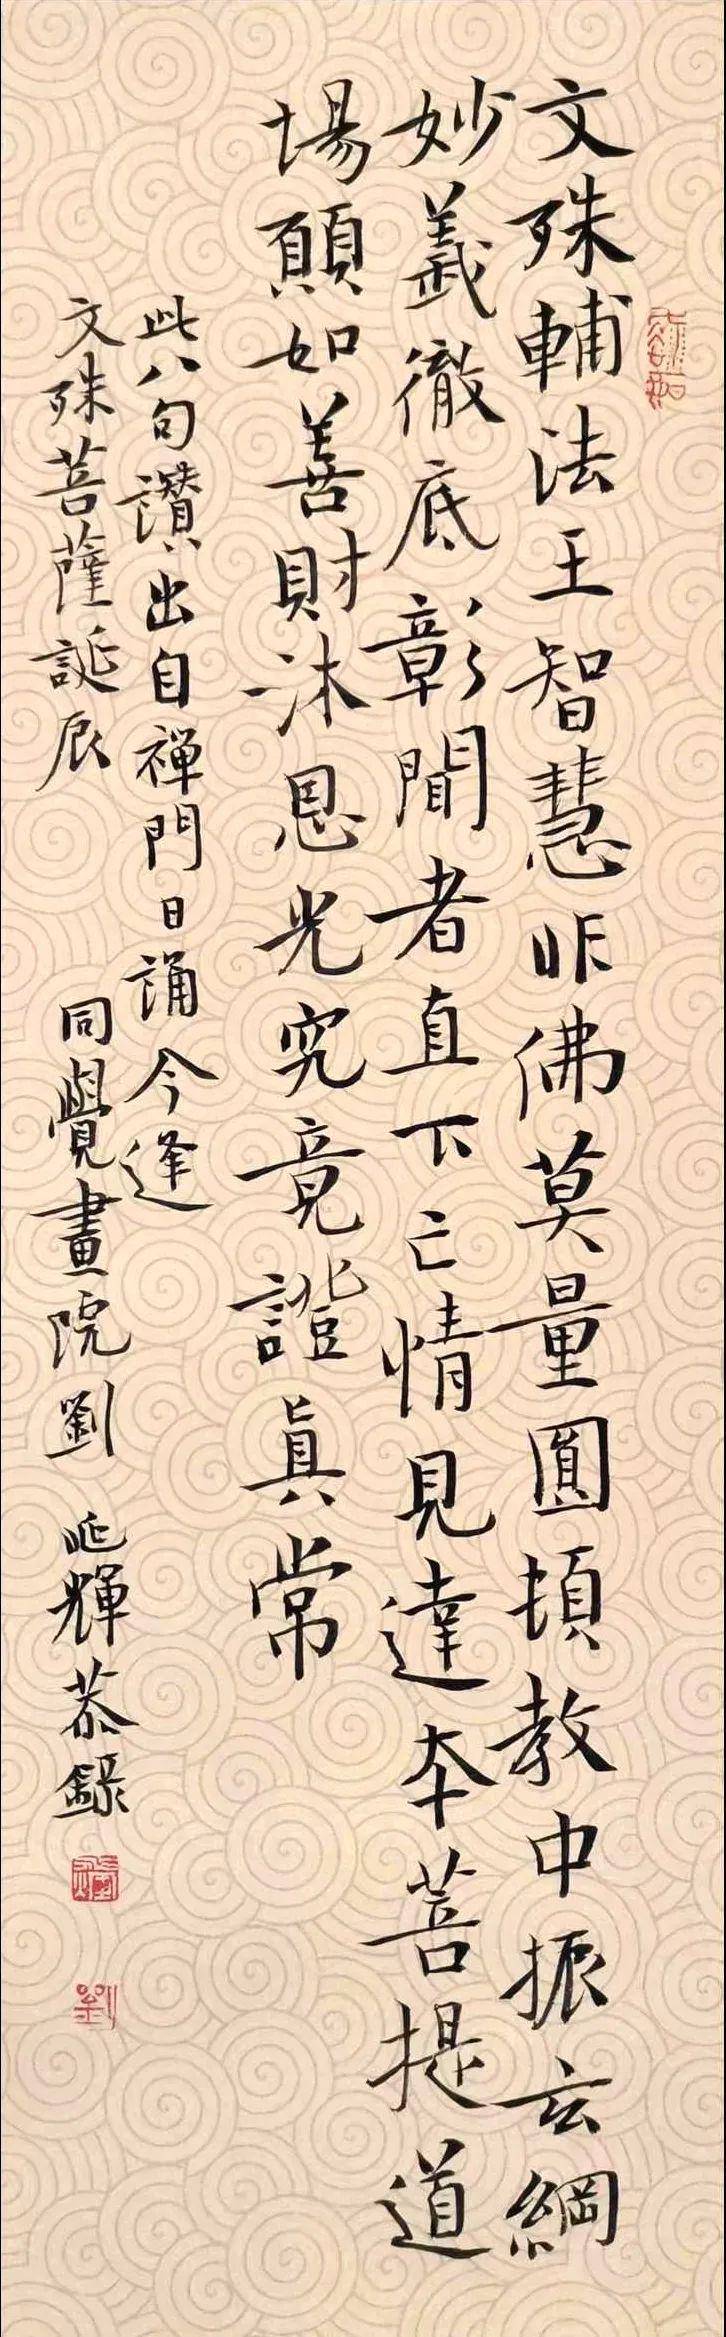 文殊輔法王智慧非佛莫量圓頓教中振玄綱
妙義徹底彰聞者直下亡情見達本菩提道
場願如善財沐恩光究竟證真常
此八句讚出自禪門日誦今逢
文殊菩薩誕辰
同覺畫院劉延輝恭錄
劉